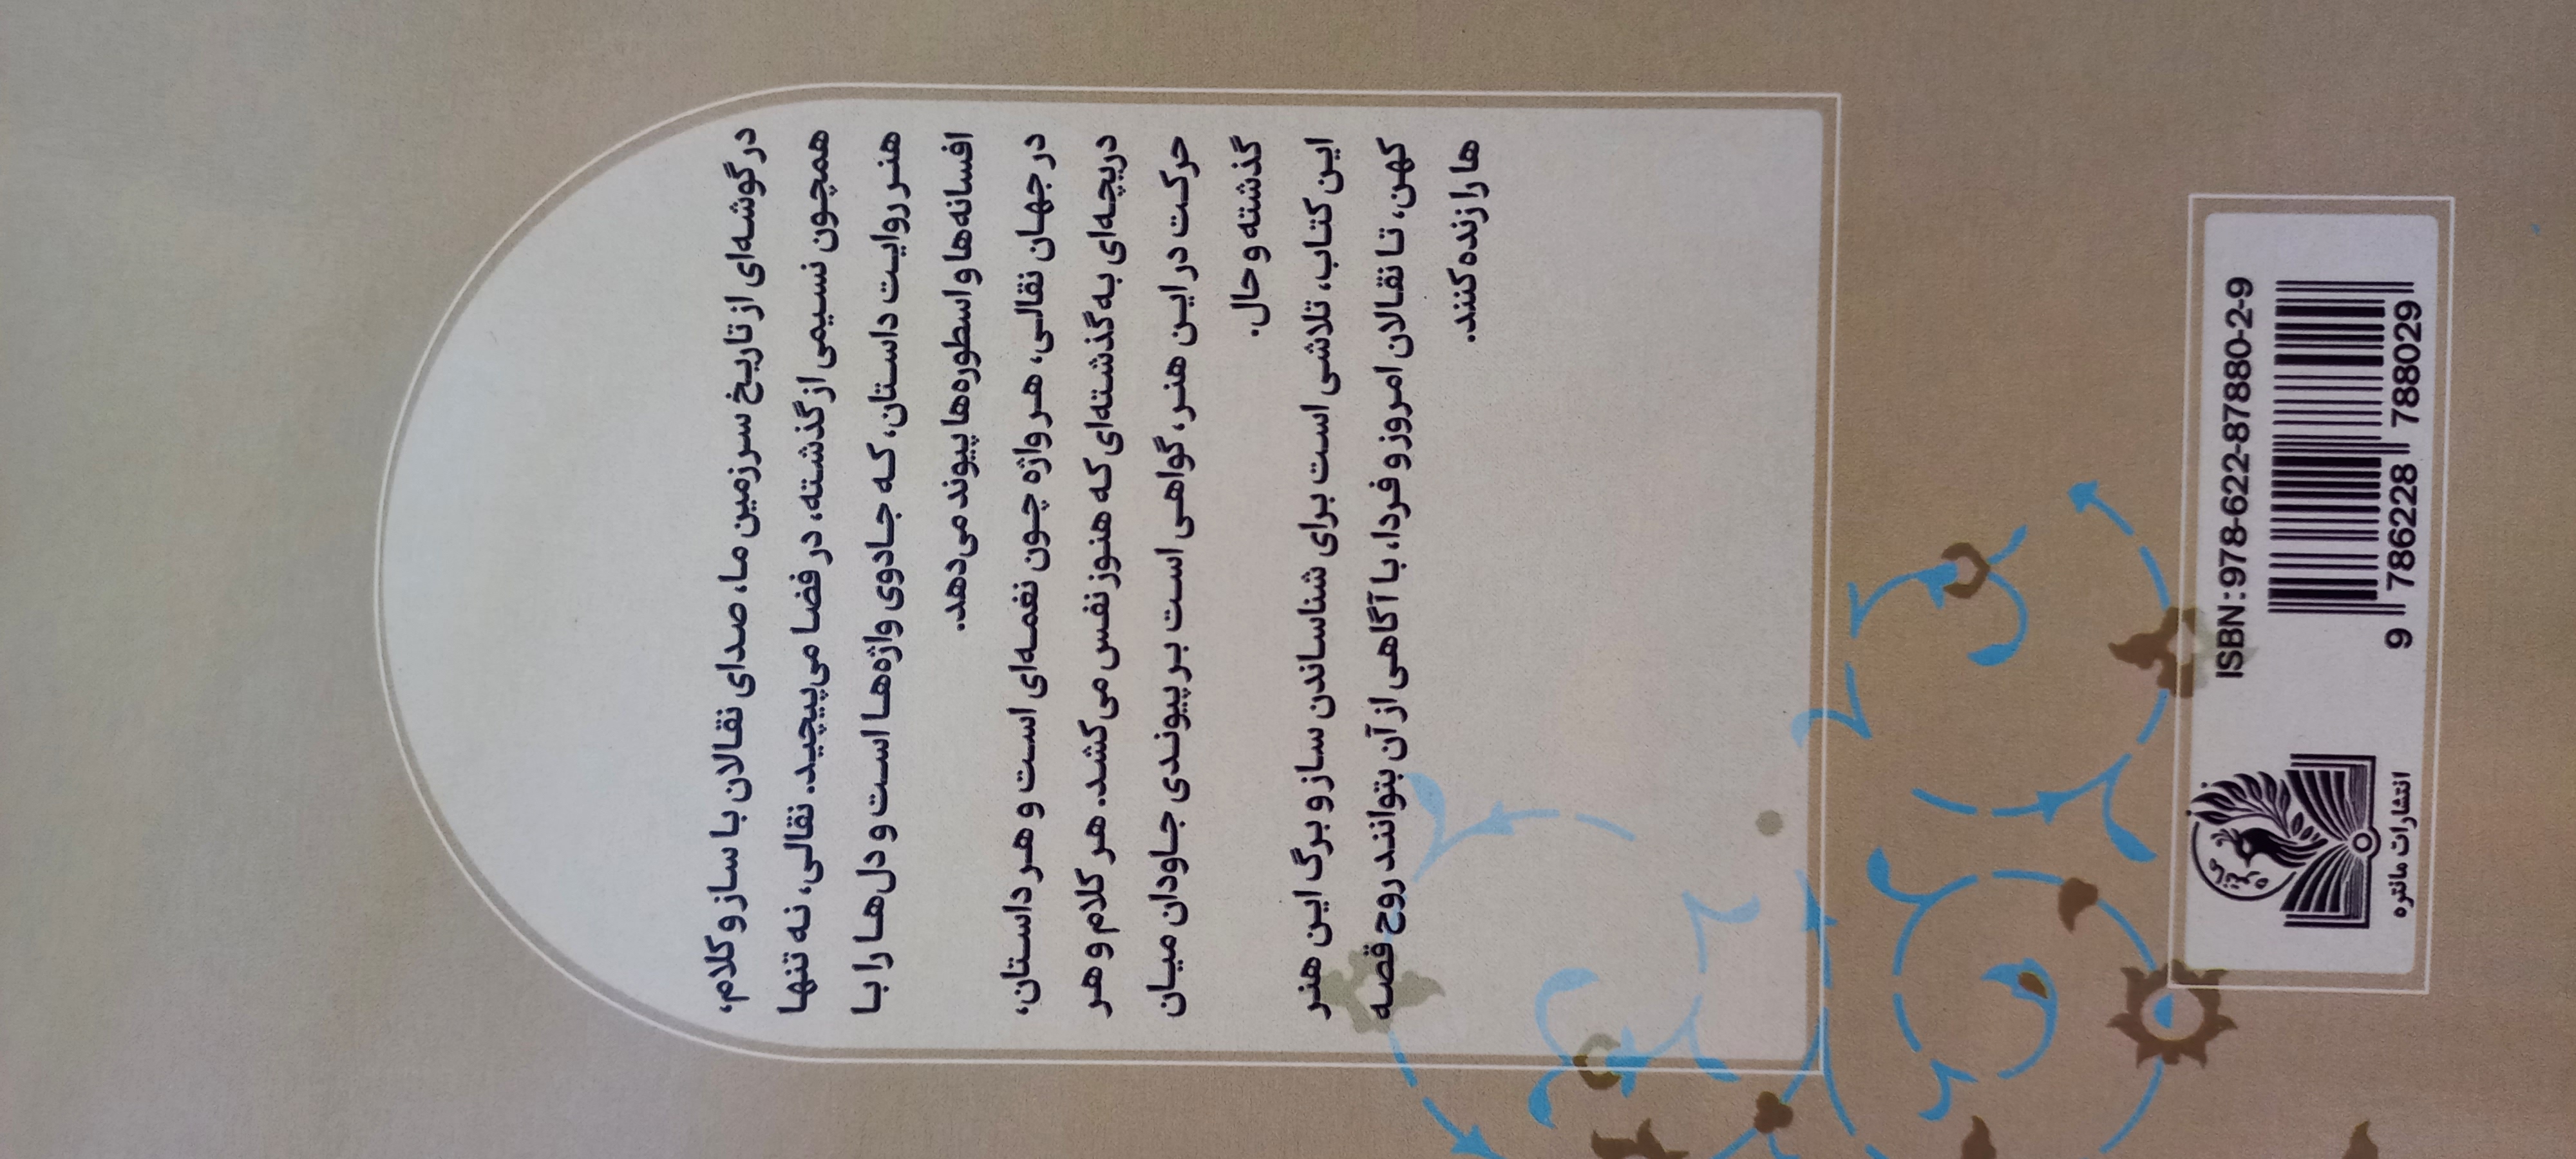 در گوشه‌ای از تاریخ سرزمین ما، صدای نقالان با ساز و کلام،
همچون نسیمی از گذشته، در فضا می‌پیچید. نقالی، نه تنها
هنر روایت داستان، که جادوی واژه‌ها است و دل‌ها را با
افسانه‌ها و اسطوره‌ها پیوند می‌دهد.
در جهان نقالی، هر واژه چون نغمه‌ای است و هر داستان،
دریچه‌ای به گذشته‌ای که هنوز نفس می‌کشد. هر کلام و هر
حرکت در این هنر، گواهی است بر پیوندی جاودان میان
گذشته و حال.
این کتاب، تلاشی است برای شناساندن ساز و برگ این هنر
کهن، تا نقالان امروز و فردا، با آگاهی از آن بتوانند روح قصه
ها را زنده کنند.
ISBN:978-622-87880-2-9
9 786228 788029
انتشارات مانتره